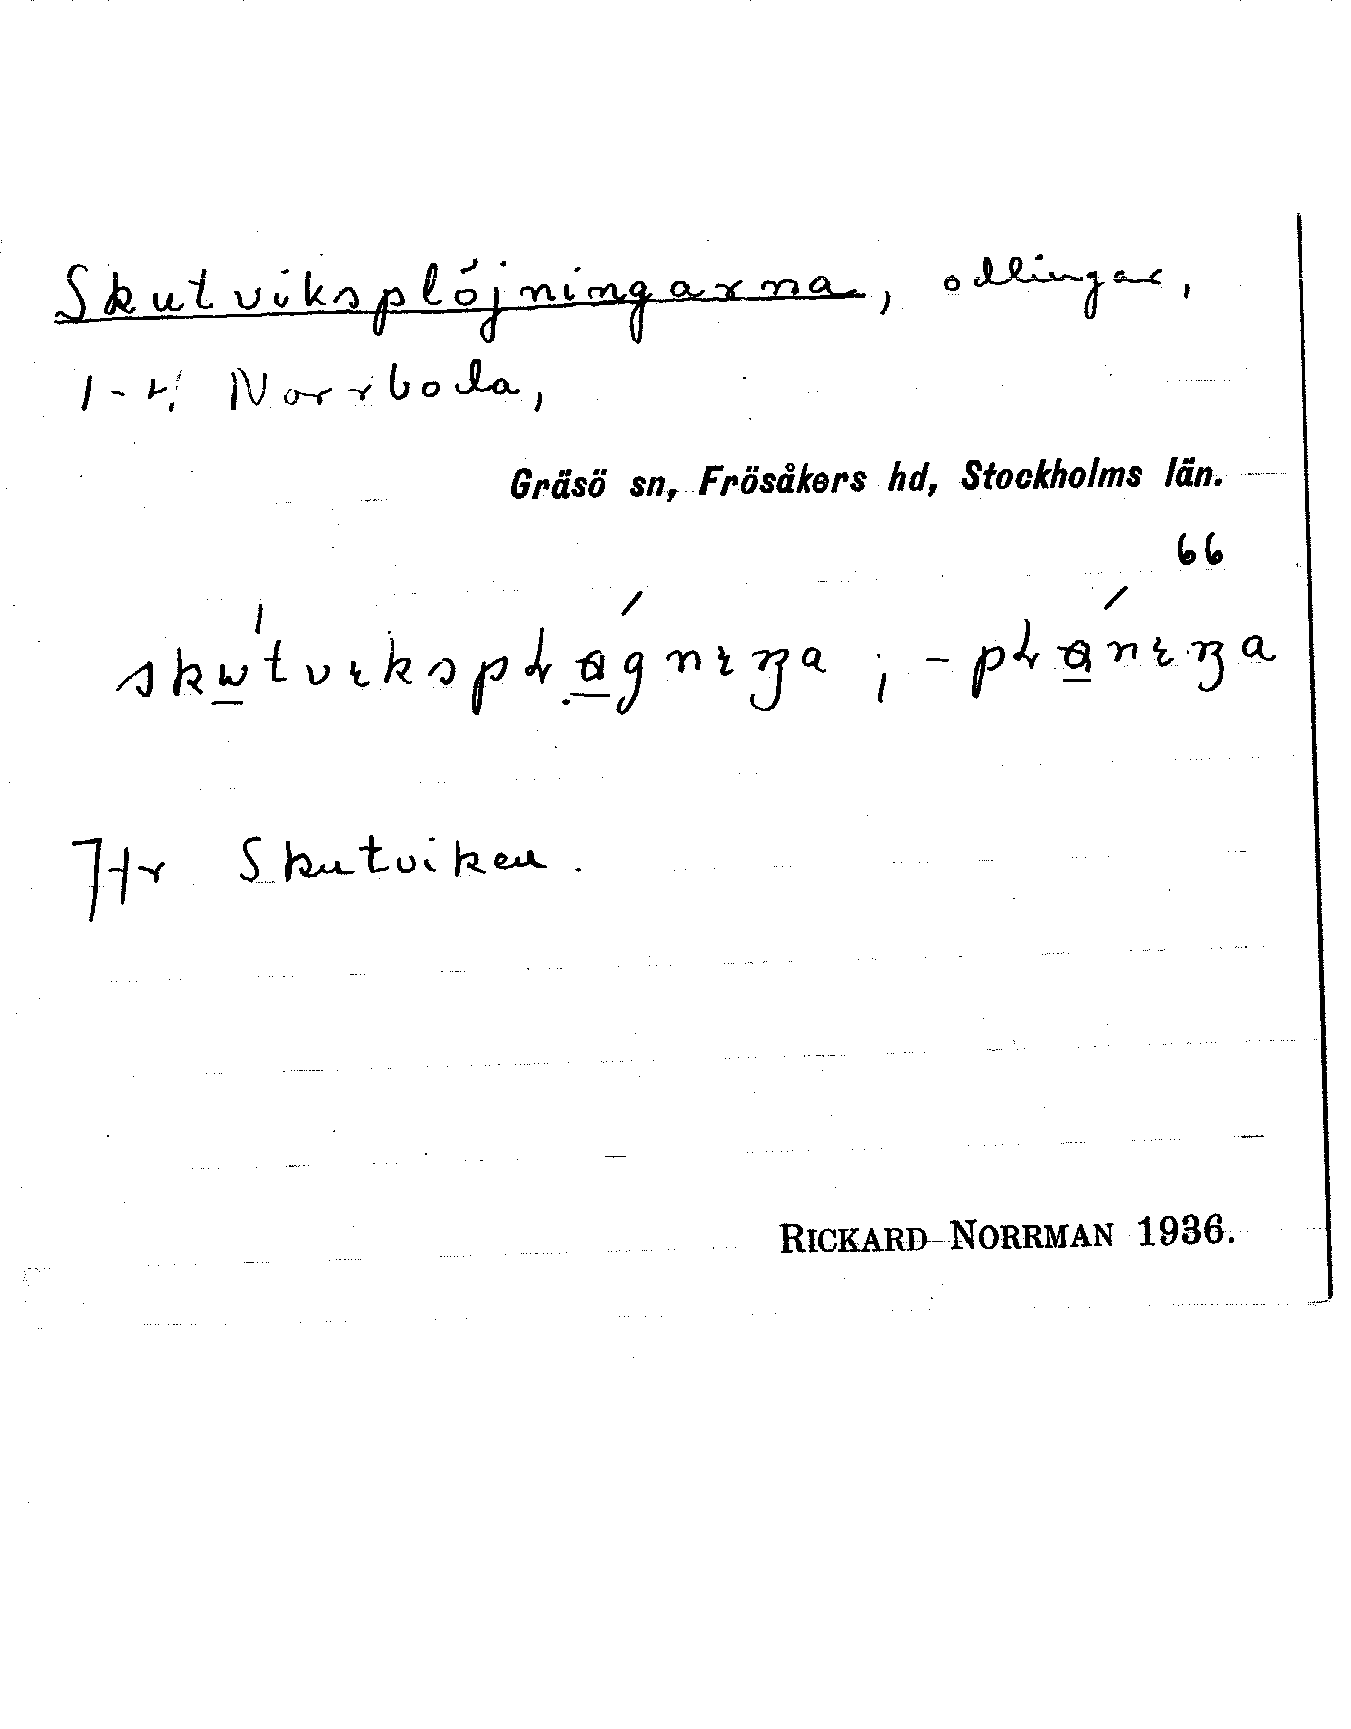 Skutviksplöjningarna, odlingar,
1-4, Norrboda,
Gräsö sn, Frösåkers hd, Stockholms län.
66
Jfr Skutviken.
RICKARD NORRMAN 1936.